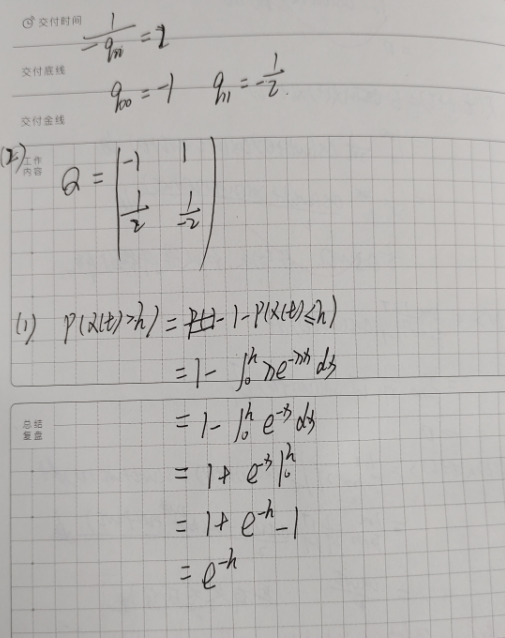 交付时间
1/-q₁₁ = 2
交付底线
q₀₀ = -1 q₁₁ = -1/2.
交付金线
(2) 工作内容
Q = (-1 1
1/2 1/-2)
(1) P(X(t)>h) = 1 - P(X(t)≤h)
= 1 - ∫₀ʰ λe^{-λx} dx
总结
复盘
= 1 - ∫₀ʰ e^{-x} dx
= 1 + e^{-x} |₀ʰ
= 1 + e^{-h} - 1
= e^{-h}